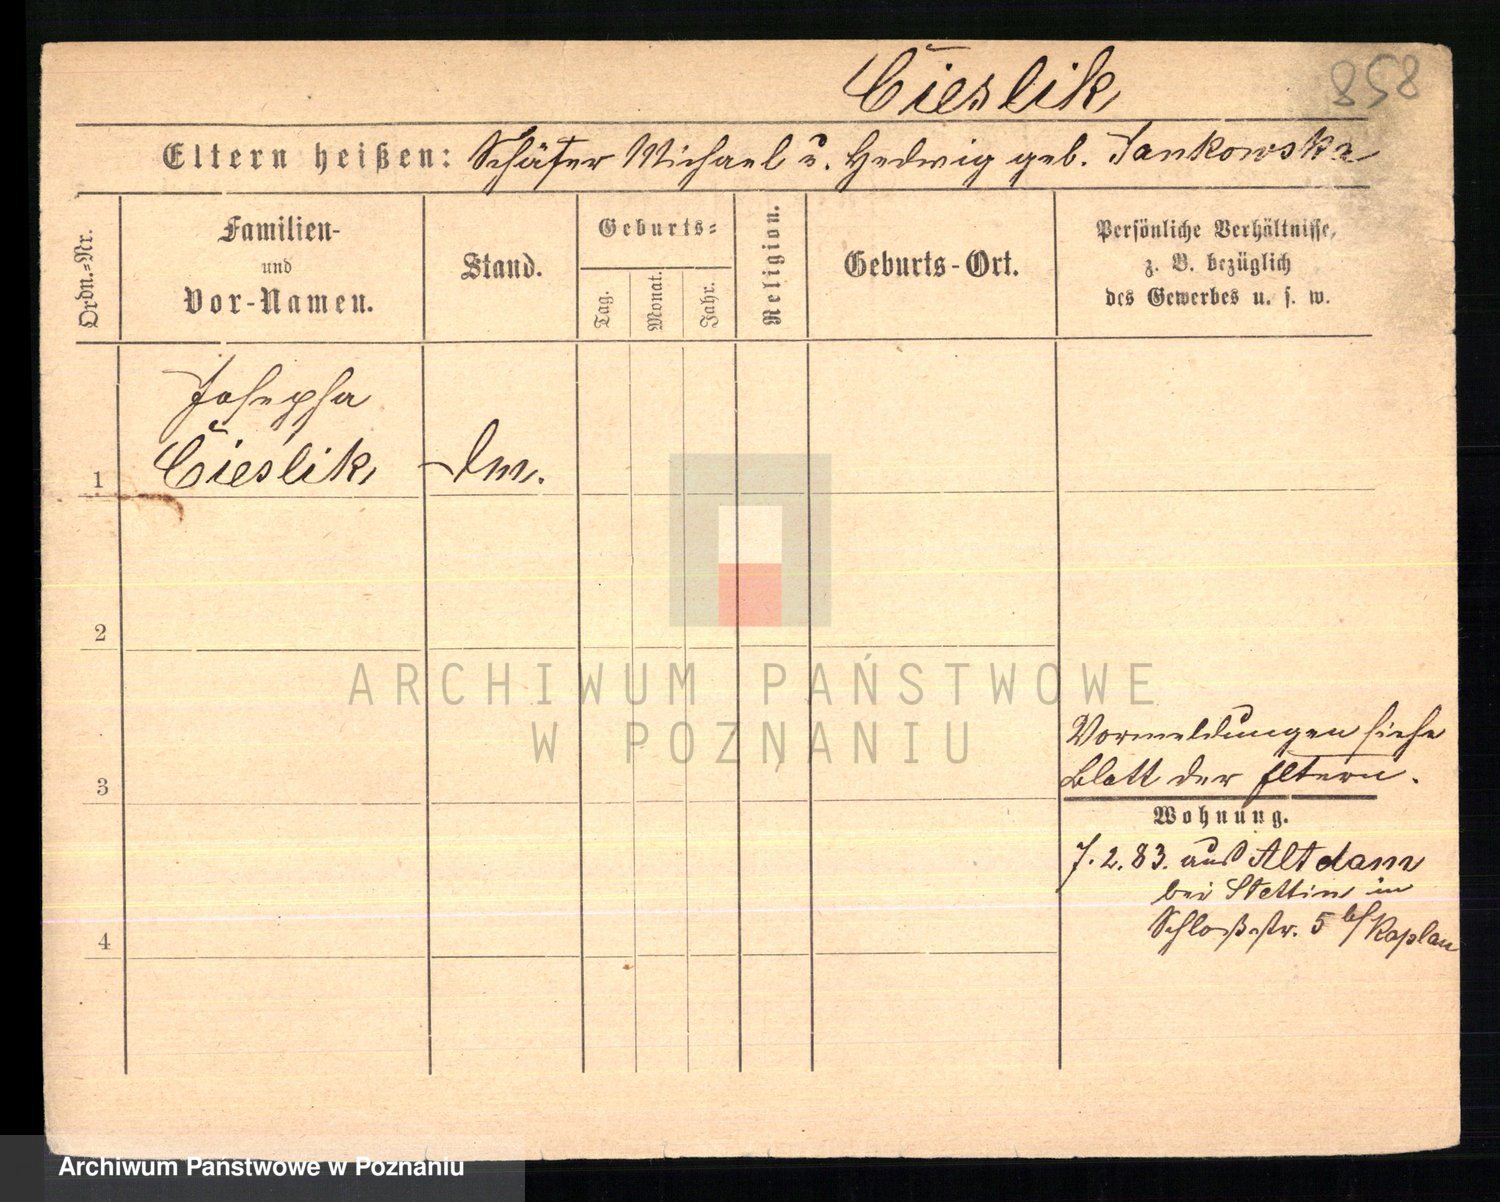 858
Cieslik
Eltern heißen: Schäfer Michael u. Hedwig geb. Jankowska
Ordn.-Nr.
Familien-
und
Vor-Namen.
Stand.
Geburts-
Tag.
Monat.
Jahr.
Religion.
Geburts-Ort.
Persönliche Verhältnisse,
z. B. bezüglich
des Gewerbes u. s. w.
Josepha
1 Cieslik
2
ARCHIWUM PAŃSTWOWE
W POZNANIU
Vormeldungen siehe
3 Blatt der Eltern.
Wohnung.
7. 2. 83. aus Altdam
bei Stettin in
4 Schloßstr. 5 b/ Kaplan
Archiwum Państwowe w Poznaniu